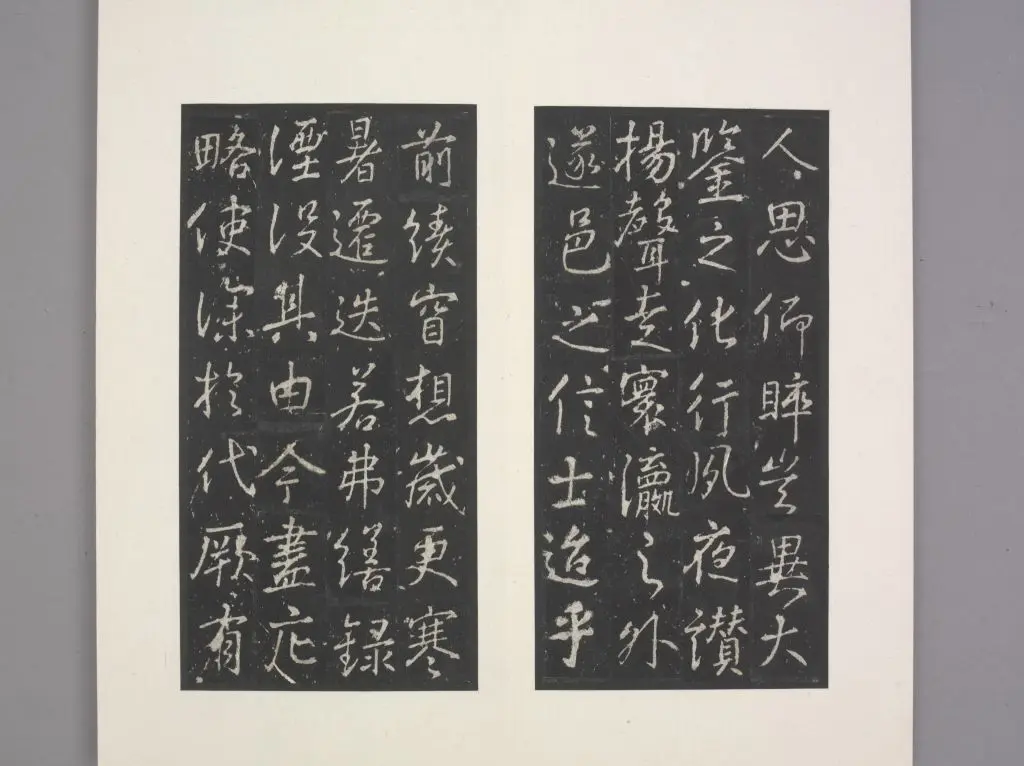 人思仰睟豈異大
鑒之化行夙夜讚
揚聲走寰瀛之外
遂邑之信士迨乎
前績窅想歲更寒
暑遷迭若弗繕録
湮没其由今盡庀
略使深於代厥有